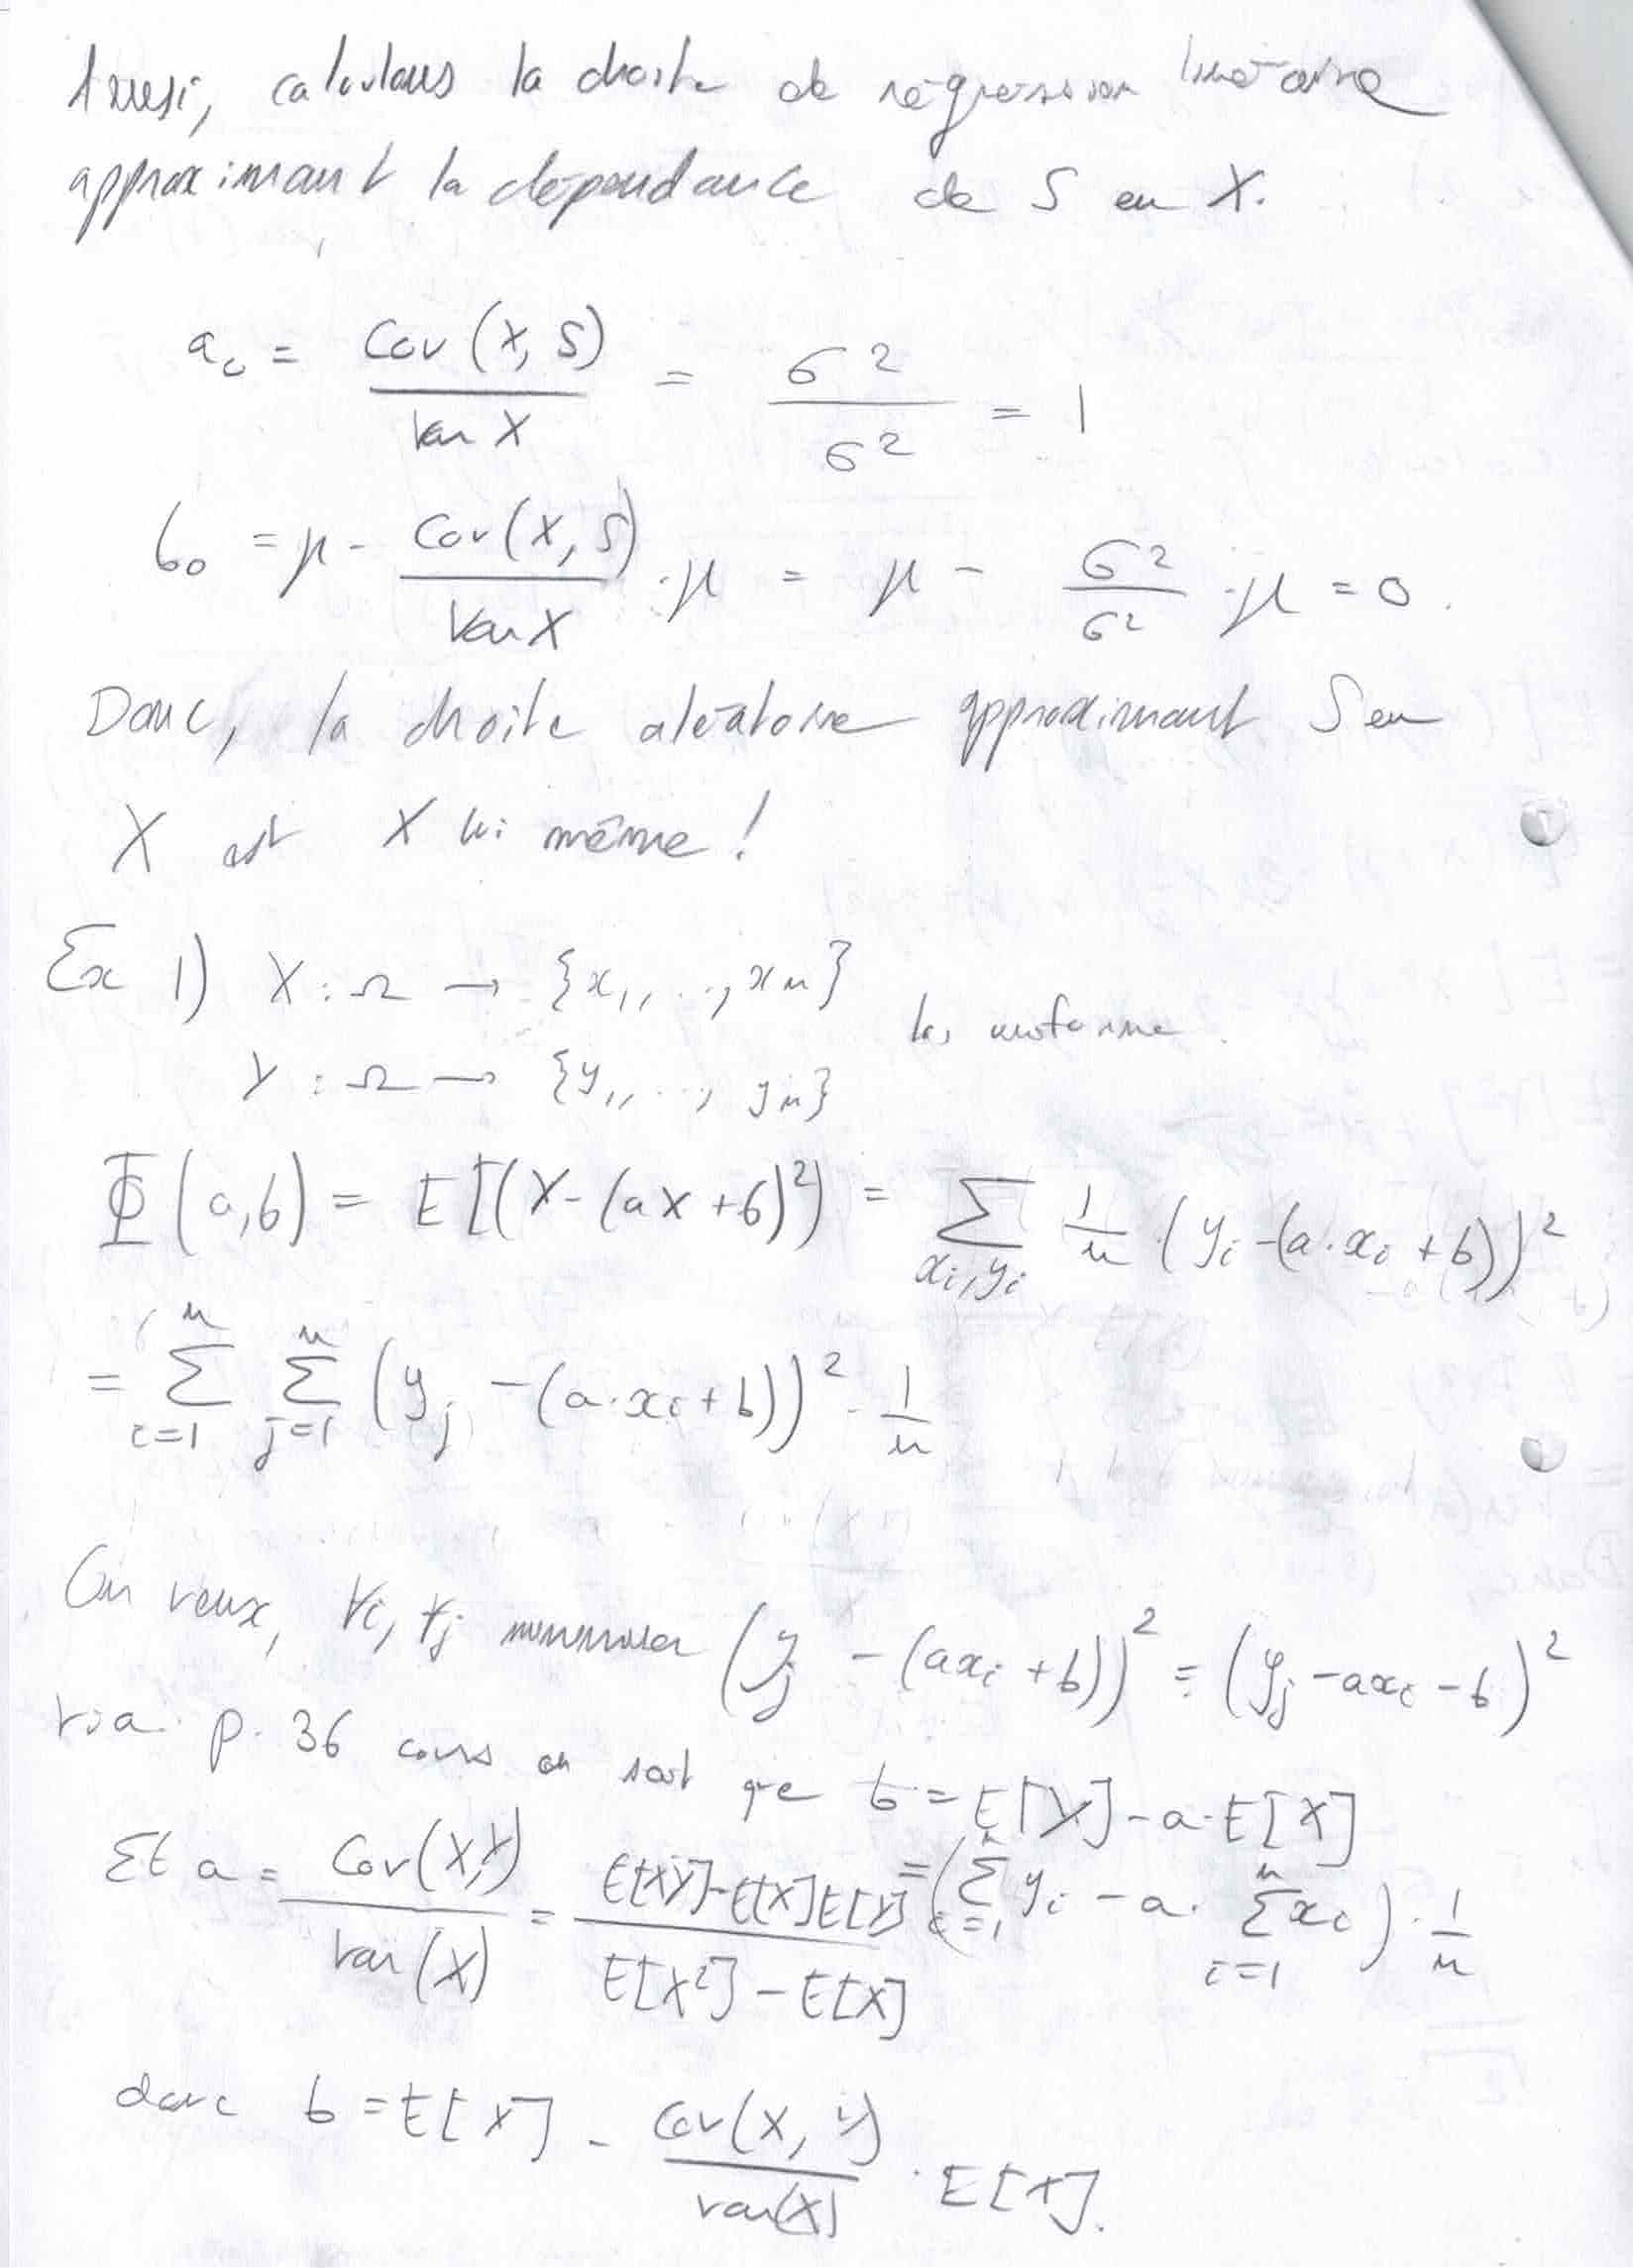 Aussi, calculons la droite de régression linéaire
approximant la dépendance de S en X.
a₀ = Cov(X, S) / Var X = σ² / σ² = 1
b₀ = μ - Cov(X, S) / Var X · μ = μ - σ² / σ² · μ = 0.
Donc, la droite aléatoire approximant S en
X est X lui même !
Ex 1) X : Ω → {x₁, ..., xₙ}
loi uniforme.
Y : Ω → {y₁, ..., yₙ}
Φ(a,b) = E[(Y - (aX + b)²) = Σ_{xi, yi} 1/n · (yi - (a·xi + b))²
= Σ_{i=1}^{n} Σ_{j=1}^{n} (yj - (a·xi + b))² · 1/n
On veux, ∀i, ∀j minimiser (yj - (axi + b))² = (yj - axi - b)²
via p. 36 cours on sait que b = E[Y] - a·E[X]
= (Σ_{i=1}^{n} yi - a· Σ_{i=1}^{n} xi) · 1/n
Et a = Cov(X,Y) / Var(X) = E[XY] - E[X]E[Y] / E[X²] - E[X]
donc b = E[Y] - Cov(X, Y) / var(X) · E[X].